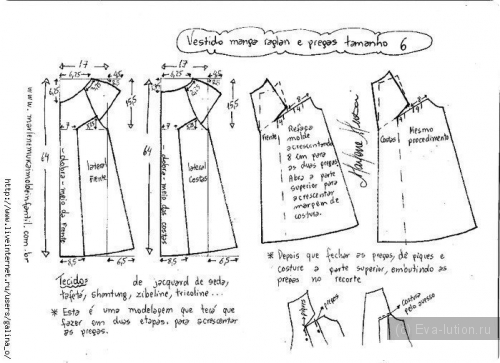 Vestido manga raglan e pregas tamanho 6
17
6,25
15,5
64
7
lateral frente
dobra - meio da frente
8,5
6,5
17
6,25
15,5
64
7
lateral costas
dobra - meio das costas
8,5
6,5
Frente
Refaça
molde
acrescentando
8 cm para
as duas pregas.
Abra a parte
superior para
acrescentar
margem de
costura.
Costas
Mesmo
procedimento
* Depois que fechar as pregas, dê piques e
costure a parte superior, embutindo as
pregas no recorte
Tecidos: de jacquard de seda,
tafetá, shantung, zibeline, tricoline...
* Esta é uma modelagem que terá que
fazer em duas etapas, para acrescentar
as pregas.
piques
Costura
pelo avesso
http://www.liveinternet.ru/users/galina_o/
(c) Eva-lution.ru